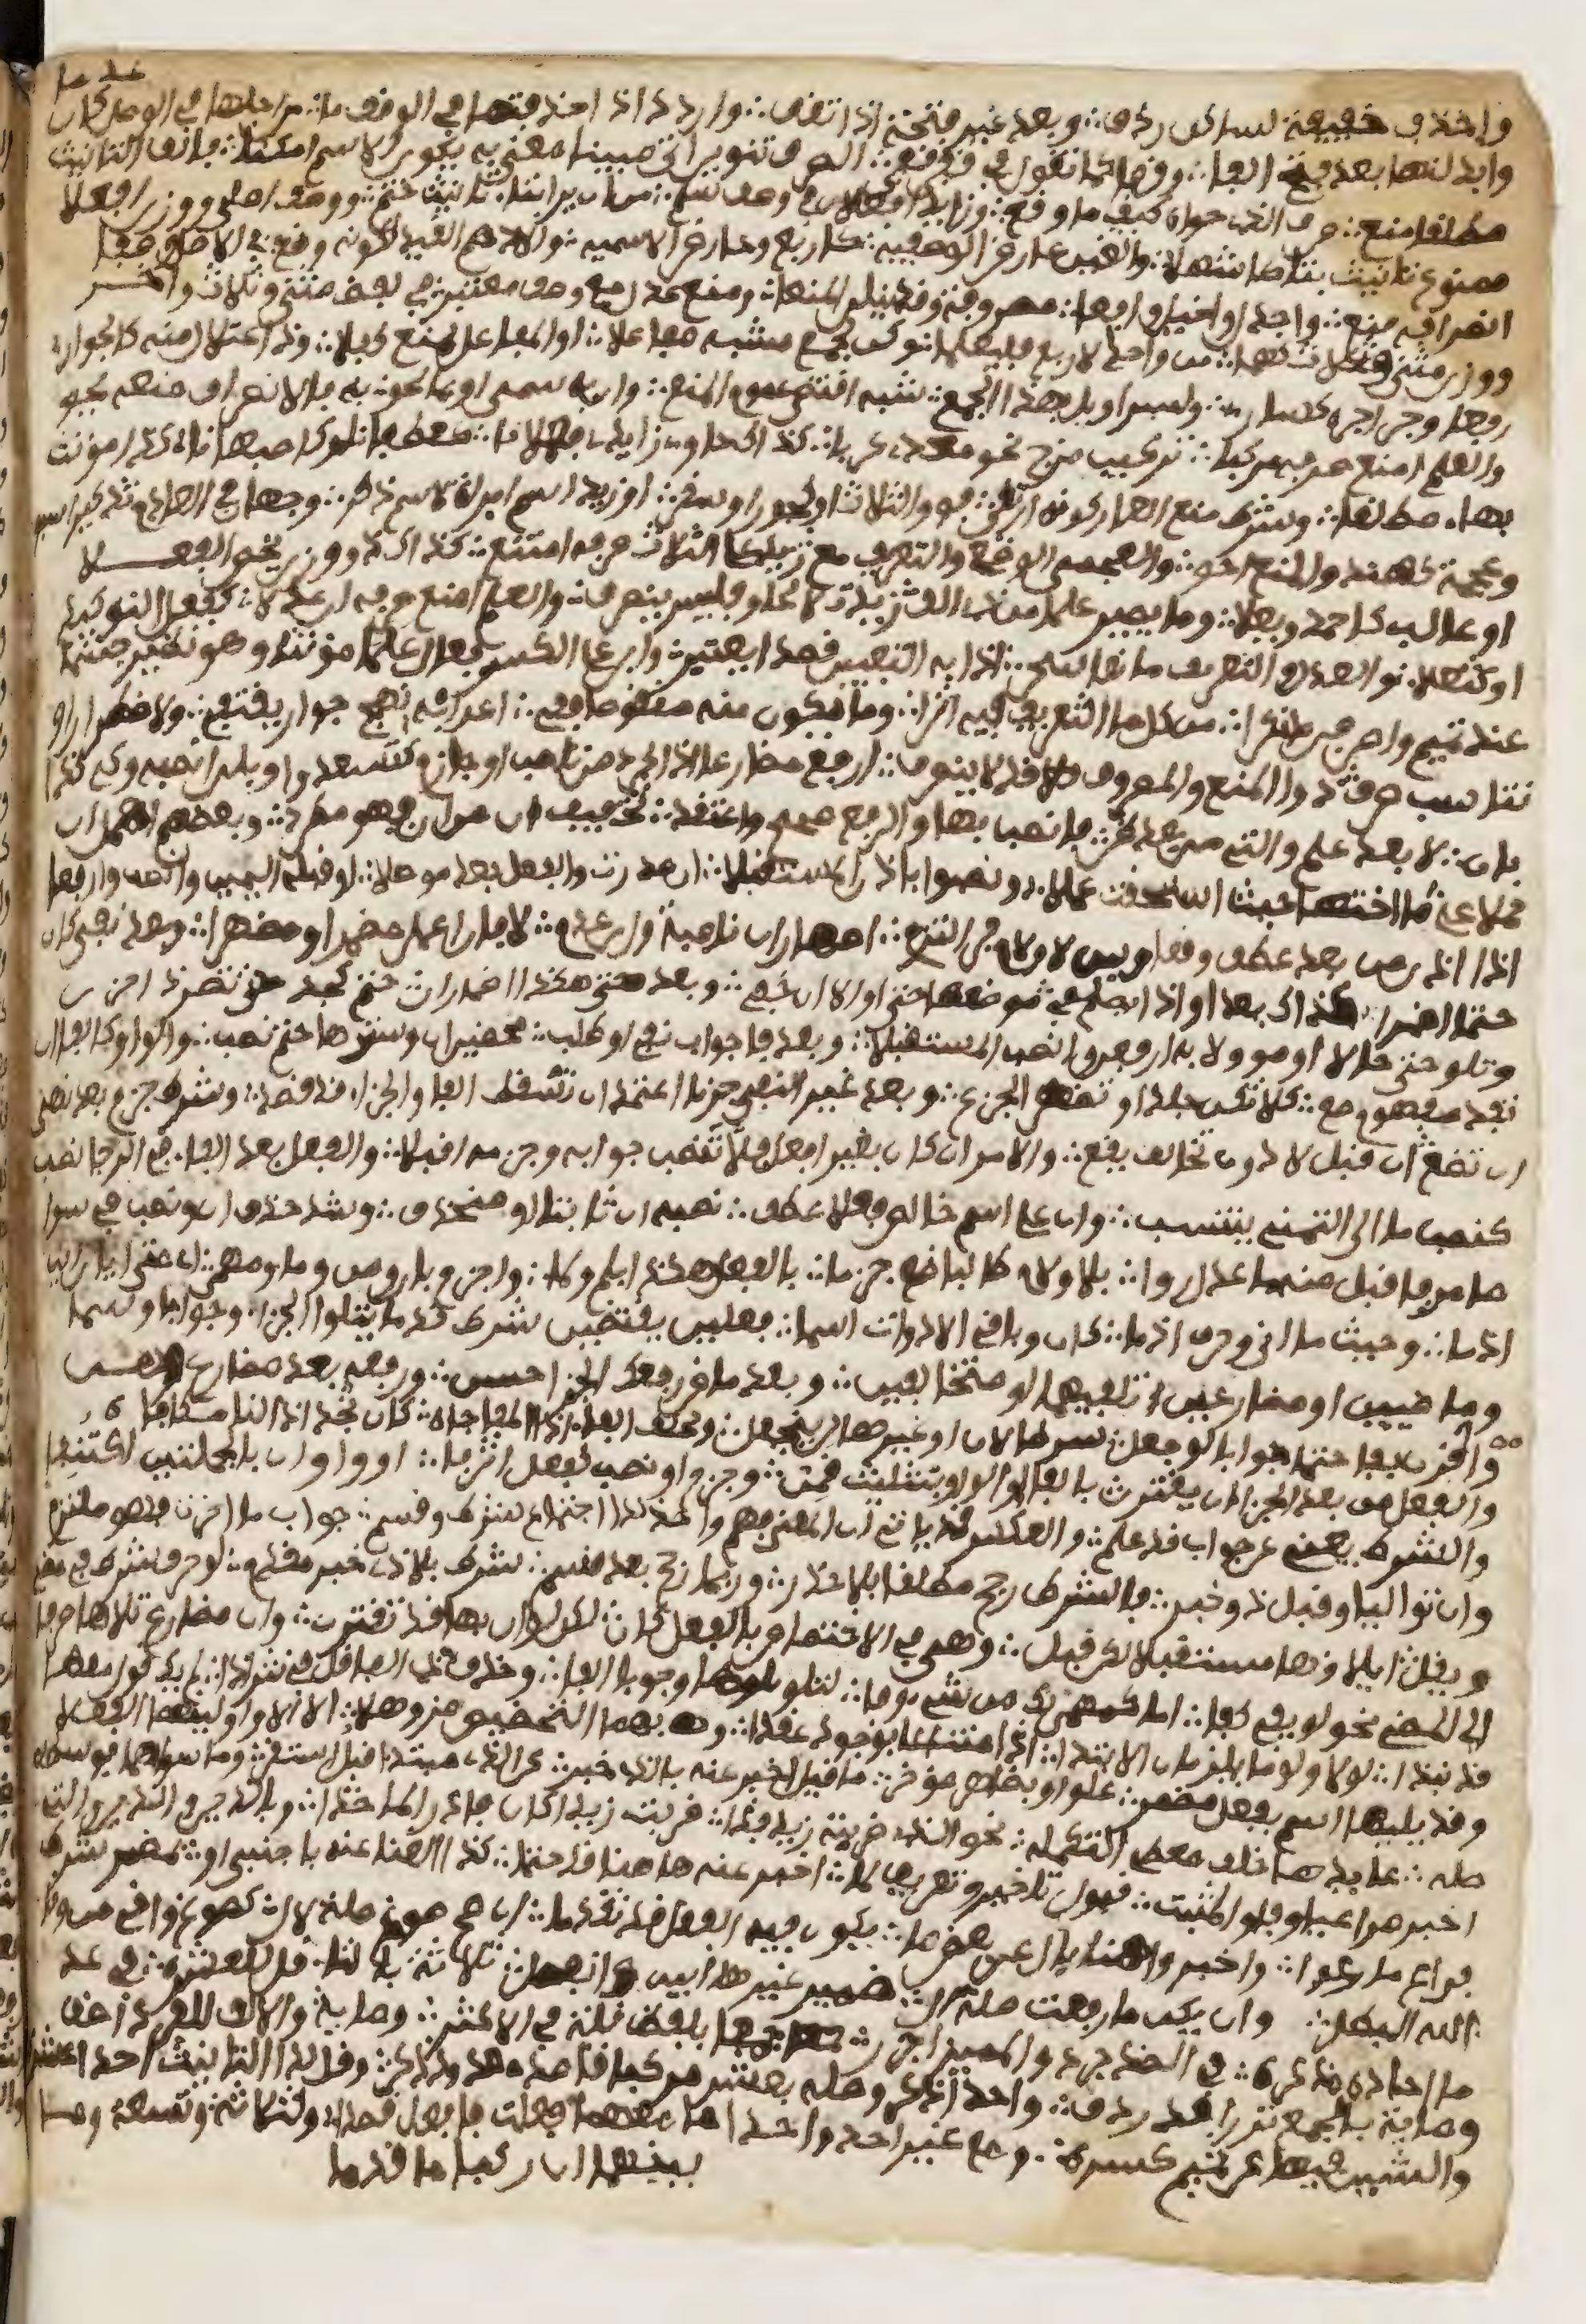 على ما
واحذف خفيفة لساكن ردف ∴ وبعد غير فتحة اذا تقف ∴ واردد اذا حذفتها في الوقف ما ∴ من اجلها في الوصل كان
وابدلنها بعد فتح الفا ∴ وقفا كما تقول في قفن قفا ∴ الصرف تنوين اتى مبينا معنى به يكون الاسم امكنا ∴ فالف التانيث
مطلقا منع ∴ صرف الذي حواه كيف ما وقع ∴ وزايدا فعلان في وصف سلم ∴ من ان يرى بتاء تانيث ختم ∴ ووصف اصلي ووزن افعلا
ممنوع تانيث بتا كاشهلا ∴ والغين عارض الوصفيه ∴ كاربع وعارض الاسميه ∴ والادهم القيد لكونه وضع ∴ في الاصل وصفا
انصرافه منع ∴ واجدل واخيل وافعا ∴ مصروفة وقد ينلن المنعا ∴ ومنع عدل مع وصف معتبر ∴ في لفظ مثنى وثلاث واخر
ووزن مثنى وثلاث كهما ∴ من واحد لاربع فليعلما ∴ وكن لجمع مشبه مفاعلا ∴ او المفاعل بمنع كافلا ∴ وذا اعتلال منه كالجوار
رفعا وجرا اجره كسار ∴ ولسراويل بهذا الجمع ∴ شبه اقتضى عموم المنع ∴ وان به سمي او بما لحق به فالانصراف منعه يحق
والعلم امنع صرفه مركبا ∴ تركيب مزج نحو معدي كربا ∴ كذاك حاوي زايدي فعلانا ∴ كغطفان وكاصبهانا ∴ كذا مونث
بهاء مطلقا ∴ وشرط منع العار كونه ارتقى ∴ فوق الثلاث او كجور او سقر ∴ او زيد اسم امراة لا اسم ذكر ∴ وجهان في العادم تذكيرا سبق
وعجمة كهند والمنع احق ∴ والعجمي الوضع والتعريف مع ∴ زيد على الثلاث صرفه امتنع ∴ كذاك ذو وزن يخص الفعلا
او غالب كاحمد ويعلا ∴ وما يصير علما من ذي الف ∴ زيدت لالحاق فليس ينصرف ∴ والعلم امنع صرفه ان عدلا ∴ كفعل التوكيد
او كثعلا ∴ والعدل والتعريف مانعا سحر ∴ اذا به التعيين قصدا يعتبر ∴ وابن على الكسر فعال علما مونثا وهو نظير جشما
عند تميم واصرفن ما نكرا ∴ من كل ما التعريف فيه اثرا ∴ وما يكون منه منقوصا ففي ∴ اعرابه نهج جوار يقتفي ∴ ولاضطرار او
تناسب صرف ذو المنع والمصروف قد لا ينصرف ∴ ارفع مضارعا اذا يجرد من ناصب او جازم كتسعد وبلن انصبه وكي كذا
بان ∴ لا بعد علم والتي من بعد ظن ∴ فانصب بها والرفع صحح واعتقد ∴ تخفيفها من ان فهو مطرد ∴ وبعضهم اهمل ان
حملا على ما اختها حيث استحقت عملا ∴ ونصبوا باذن المستقبلا ∴ ان صدرت والفعل بعد موصلا ∴ او قبله اليمين وانصب وارفعا
اذا اذن من بعد عطف وقعا وبين لا ولام جر التزم ∴ اظهار ان ناصبة وان عدم ∴ لا فان اعمل مضمرا او مظهرا ∴ وبعد نفي كان
حتما اضمرا ∴ كذاك بعد او اذا يصلح في ∴ موضعها حتى او الا ان خفي ∴ وبعد حتى هكذا اضمار ان ∴ حتم كجد حتى تسر ذا حزن
وتلو حتى حالا او موولا به ارفعن وانصب المستقبلا ∴ وبعد فا جواب نفي او طلب ∴ محضين ان وسترها حتم نصب ∴ والواو كالفا ان
تفد مفهوم مع ∴ كلا تكن جلدا وتظهر الجزع ∴ وبعد غير النفي جزما اعتمد ان تسقط الفا والجزاء قد قصد ∴ وشرط جزم بعد نهي
ان تضع ان قبل لا دون تخالف يقع ∴ والامر ان كان بغير افعل فلا تنصب جوابه وجزمه اقبلا ∴ والفعل بعد الفاء في الرجا نصب
كنصب ما الى التمني ينتسب ∴ وان على اسم خالص فعل عطف ∴ تنصبه ان ثابتا او منحذف ∴ وشذ حذف ان ونصب في سوا
ما مر فاقبل منه ما عدل روا ∴ بلا ولام طالبا ضع جزما ∴ بالفعل هكذا بلم ولما ∴ واجزم بان ومن وما ومهما ∴ اي متى ايان اين
اذما ∴ وحيث ما انى وحرف اذما ∴ كان وباقي الادوات اسما ∴ فعلين يقتضين شرط قدما يتلوا الجزاء وجوابا وسما
وماضيين او مضارعين ∴ تلفيهما او متخالفين ∴ وبعد ماض رفعك الجزا حسن ∴ ورفعه بعد مضارع وهن
واقرن بفا حتما جوابا لو جعل ∴ شرطا لان او غيرها لم ينجعل ∴ وتخلف الفاء اذا المفاجاه ∴ كان تجد اذا لنا مكافاه
والفعل من بعد الجزا ان يقترن بالفا او الواو بتثليث قمن ∴ وجزم او نصب لفعل اثر فا ∴ او واو ان بالجملتين اكتنفا
والشرط يغني عن جواب قد علم ∴ والعكس قد ياتي ان المعنى فهم واحذف لدا اجتماع شرط وقسم ∴ جواب ما اخرت فهو ملتزم
وان تواليا وقبل ذو خبر ∴ فالشرط رجح مطلقا بلا حذر ∴ وربما رجح بعد قسم ∴ شرط بلا ذي خبر مقدم ∴ لو حرف شرط في مضي
ويقل ايلاوها مستقبلا لكن قبل ∴ وهي في الاختصاص بالفعل كان ∴ لكن لو ان بها قد تقترن ∴ وان مضارع تلاها صرفا
الى المضي نحو لو يفي كفا ∴ اما كمهما يك من شيء وفا ∴ لتلو تلوها وجوبا الفا ∴ وحذف ذي الفا قل في نثر اذا ∴ لم يك قول معها
قد نبذا ∴ لولا ولوما يلزمان الابتدا ∴ اذا امتناعا بوجود عقدا ∴ وبهما التحضيض مز وهلا ∴ الا الا واولينها الفعلا
وقد يليها اسم بفعل مضمر ∴ علق او بظاهر موخر ∴ ما قيل اخبر عنه بالذي خبر ∴ عن الذي مبتدا قبل استقر ∴ وما سواهما فوسطه
صله ∴ عايدها خلف معطي التكمله ∴ نحو الذي ضربته زيد فذا ∴ ضربت زيدا كان فادر الماخذا ∴ وباللذين والذين والتي
اخبر مراعيا وفاق المثبت ∴ قبول تاخير وتعريف لما ∴ اخبر عنه هاهنا قد حتما ∴ كذا الغنا عنه باجنبي او ∴ بمضمر شرط
فراع ما رعوا ∴ واخبروا هنا بال عن بعض ما ∴ يكون فيه الفعل قد تقدما ∴ ان صح صوغ صلة منه لال كصوغ واق من وقا
الله البطل ∴ وان يكن ما رفعت صلة ال ∴ ضمير غيرها ابين وانفصل ∴ ثلاثة بالتا قل للعشره ∴ في عد
ما احاده مذكره ∴ في الضد جرد والمميز اجرر ∴ جمعا بلفظ قلة في الاكثر ∴ وماية والالف للفرد اضف
وماية بالجمع نزرا قد ردف ∴ واحد اذكر وصلنه بعشر مركبا قاصد معدود ذكر ∴ وقل لدا التانيث احدى عشره
والشين فيها عن تميم كسره ∴ ومع غير احد واحدى ما معهما فعلت فافعل قصدا ∴ ولثلاثة وتسعة وما
بينهما ان ركبا ما قدما